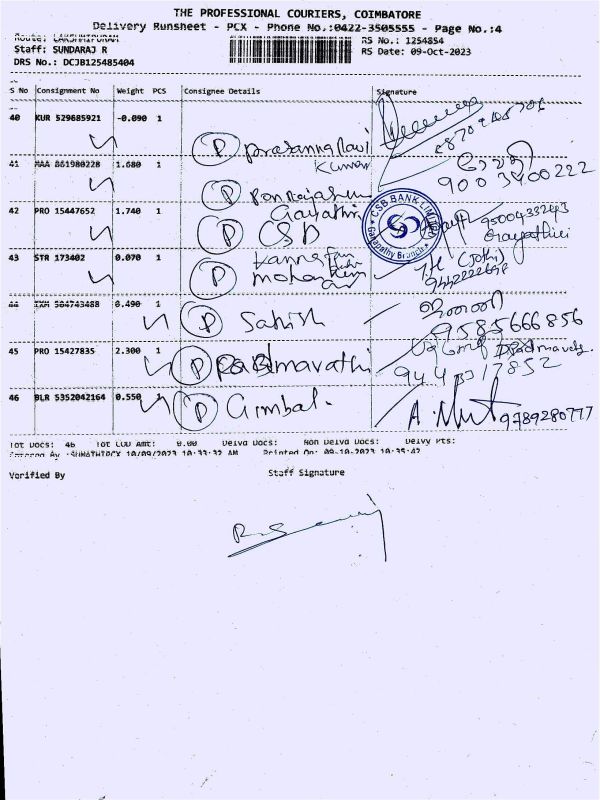 THE PROFESSIONAL COURIERS, COIMBATORE
Delivery Runsheet - PCX - Phone No.:0422-3505555 - Page No.:4
Route: LAKSHMIPURAM
RS No.: 1254854
Staff: SUNDARAJ R
RS Date: 09-Oct-2023
DRS No.: DCJB125485404
S No Consignment No Weight PCS Consignee Details Signature
40 KUR 529685921 -0.090 1
P Prasanna Ravi
Kumar
41 MAA 861980228 1.680 1
9003400222
P
Gayathri
42 PRO 15447652 1.740 1
P CSB
CSB BANK LIMITED
Ganapathy Branch
9500433243
Gayathiri
43 STR 173402 0.070 1
P Mohan
44 IXM 584743488 0.490 1
P Sathish
9585666856
45 PRO 15427835 2.300 1
P Padmavathi
Padmavathi
9443317852
46 BLR 5352042164 0.550 1
P Gimbal.
9789280777
Tot Docs: 46 Tot COD Amt: 0.00 Delvd Docs: Non Delvd Docs: Delvy Pts:
Entered By :SUMATHIPCX 10/09/2023 10:33:32 AM Printed On: 09-10-2023 10:35:42
Verified By
Staff Signature